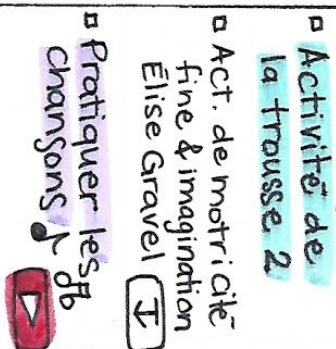 Activité de
la trousse 2
Act. de motricité
fine & imagination
Élise Gravel
Pratiquer les
chansons